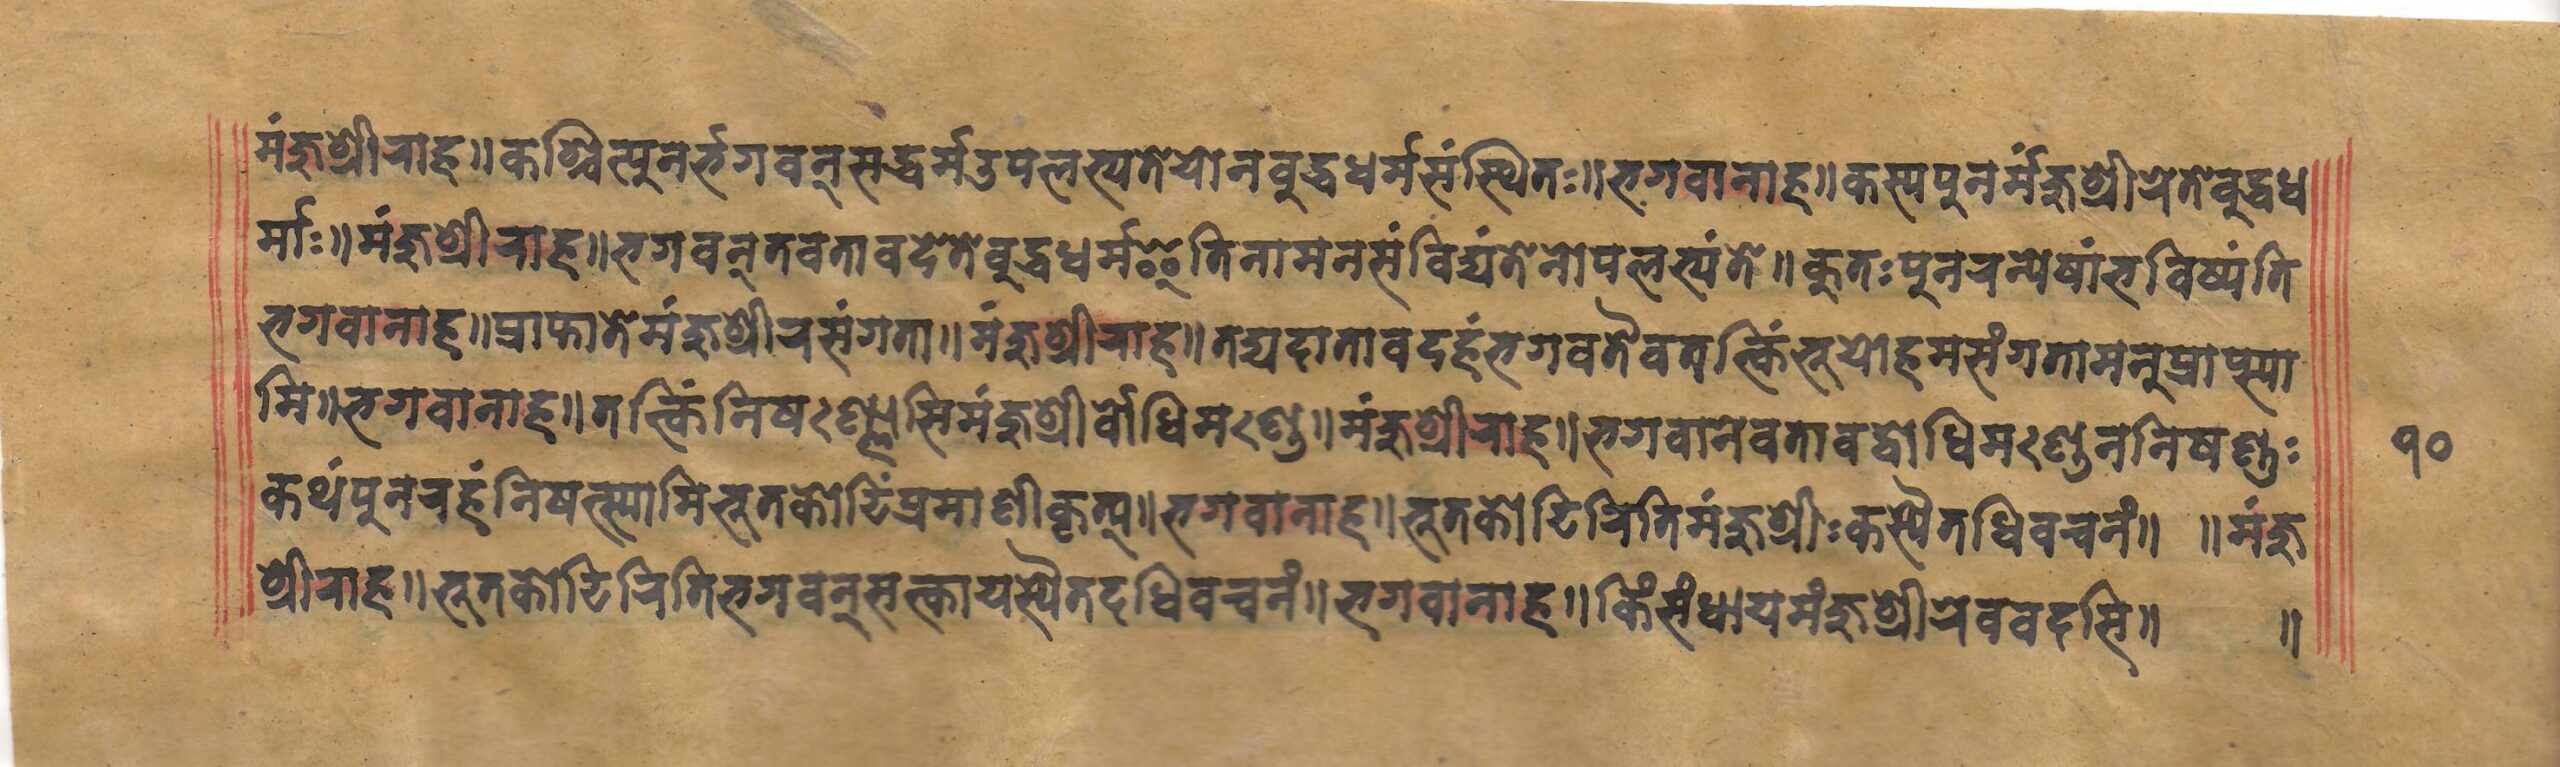 मंजुश्रीराह॥कश्चित्पुनर्भगवन्सद्धर्मउपलभ्यतेयोनबुद्धधर्मसंस्थितः॥भगवानाह॥कस्यपुनर्मंजुश्रीरेतेबुद्धध
र्माः॥मंजुश्रीराह॥भगवन्तवतावदेतेबुद्धधर्मइतिनामनसंविद्यंतेनोपलभ्यंते॥कुतःपुनरन्येषांभविष्यंति
भगवानाह॥प्राप्तातेमंजुश्रीरसंगता॥मंजुश्रीराह॥तद्यदातावदहंभगवतैवतत्किंभूयोहमसंगतामनुप्राप्स्या
मि॥भगवानाह॥तत्किंनिषण्णोसिमंजुश्रीर्बोधिमण्ड॥मंजुश्रीराह॥भगवानेवतावद्बोधिमण्डननिषण्णः
कथंपुनरहंनिषत्स्यामिभूतकोटिंप्रमाणीकृत्य॥भगवानाह॥भूतकोटिरितिमंजुश्रीःकस्यैतधिवचनं॥ ॥मंजु
श्रीराह॥भूतकोटिरितिभगवन्सत्कायस्यैतदधिवचनं॥भगवानाह॥किंसंधायमंजुश्रीरेववदसि॥ ॥
१०